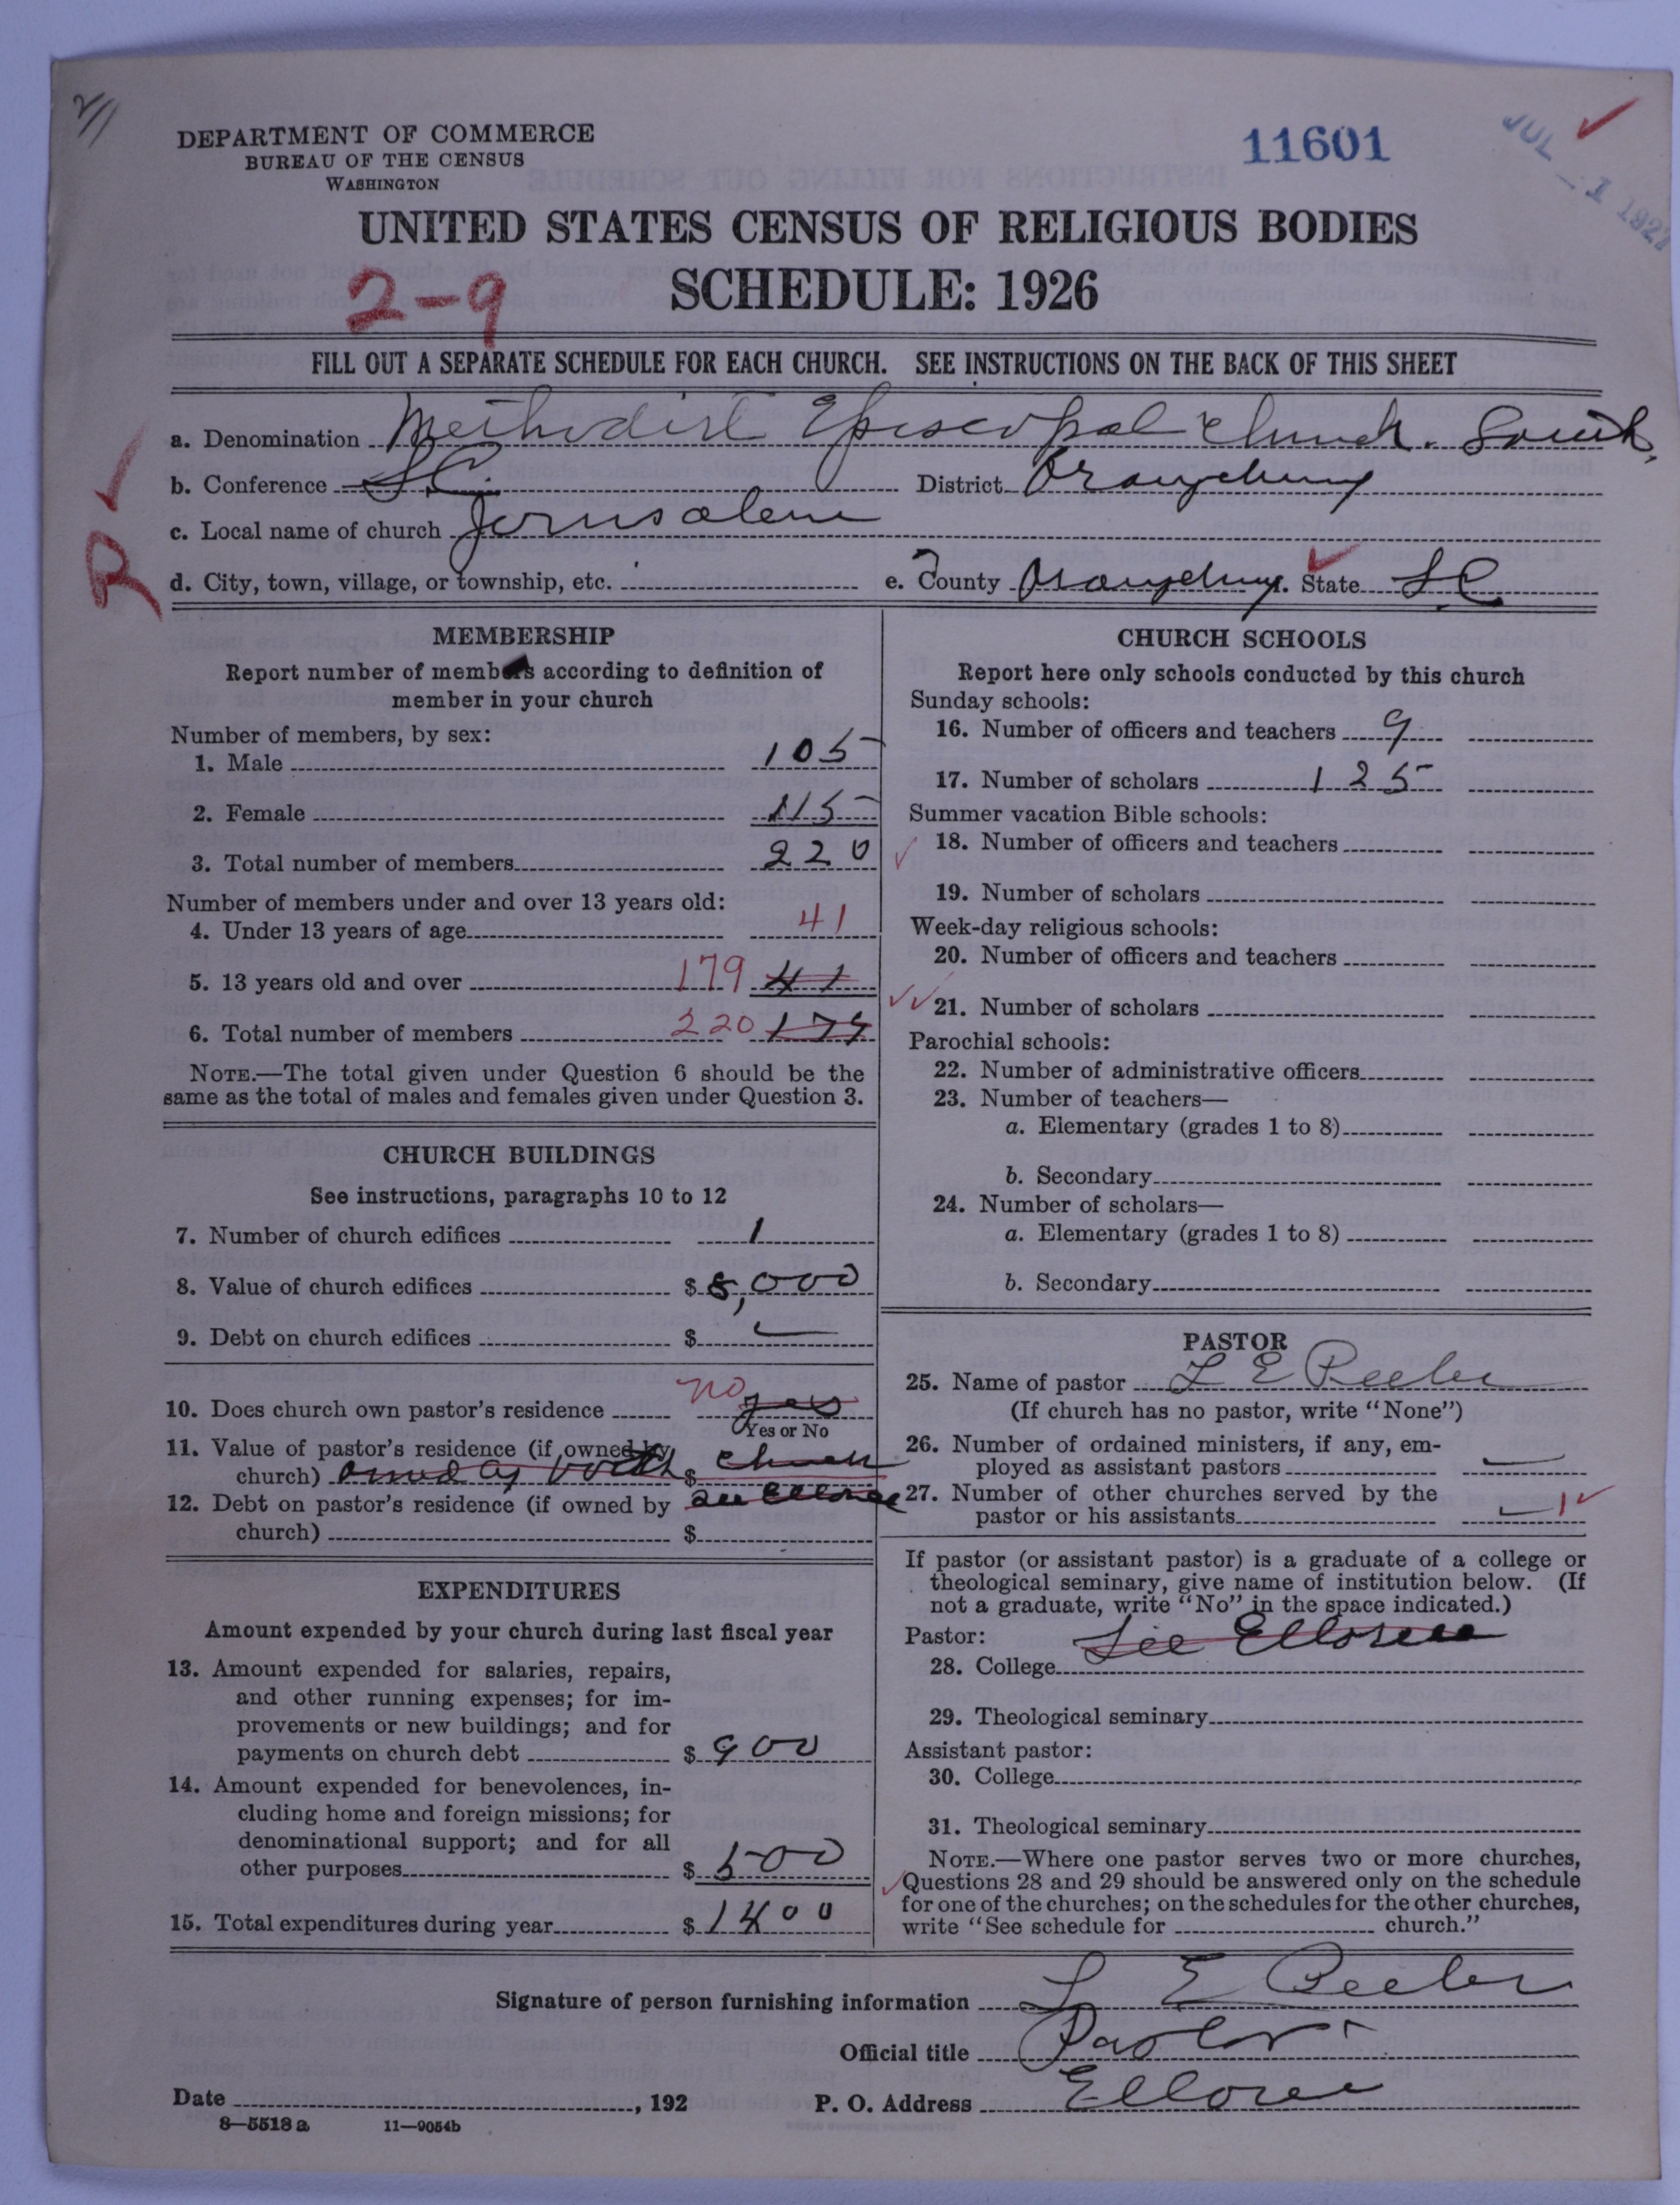 DEPARTMENT OF COMMERCE
BUREAU OF THE CENSUS
WASHINGTON
11601
JUL -1 1927
UNITED STATES CENSUS OF RELIGIOUS BODIES
SCHEDULE: 1926
2-9
FILL OUT A SEPARATE SCHEDULE FOR EACH CHURCH. SEE INSTRUCTIONS ON THE BACK OF THIS SHEET
a. Denomination Methodist Episcopal Church. South,
b. Conference S.C. District Orangeburg
c. Local name of church Jerusalem
R
d. City, town, village, or township, etc. e. County Orangeburg. State S.C.
MEMBERSHIP
Report number of members according to definition of
member in your church
Number of members, by sex:
1. Male 105
2. Female 115
3. Total number of members 220
Number of members under and over 13 years old:
4. Under 13 years of age 41
5. 13 years old and over 179 41
6. Total number of members 220 179
NOTE.—The total given under Question 6 should be the
same as the total of males and females given under Question 3.
CHURCH BUILDINGS
See instructions, paragraphs 10 to 12
7. Number of church edifices 1
8. Value of church edifices $ 5,000
9. Debt on church edifices $ —
10. Does church own pastor's residence no yes
Yes or No
11. Value of pastor's residence (if owned by
church) owned by both $ church
12. Debt on pastor's residence (if owned by see Elloree
church) $
EXPENDITURES
Amount expended by your church during last fiscal year
13. Amount expended for salaries, repairs,
and other running expenses; for im-
provements or new buildings; and for
payments on church debt $ 900
14. Amount expended for benevolences, in-
cluding home and foreign missions; for
denominational support; and for all
other purposes $ 500
15. Total expenditures during year $ 1400
CHURCH SCHOOLS
Report here only schools conducted by this church
Sunday schools:
16. Number of officers and teachers 9
17. Number of scholars 125
Summer vacation Bible schools:
18. Number of officers and teachers
19. Number of scholars
Week-day religious schools:
20. Number of officers and teachers
21. Number of scholars
Parochial schools:
22. Number of administrative officers
23. Number of teachers—
a. Elementary (grades 1 to 8)
b. Secondary
24. Number of scholars—
a. Elementary (grades 1 to 8)
b. Secondary
PASTOR
25. Name of pastor L E Peeler
(If church has no pastor, write "None")
26. Number of ordained ministers, if any, em-
ployed as assistant pastors —
27. Number of other churches served by the
pastor or his assistants — 1
If pastor (or assistant pastor) is a graduate of a college or
theological seminary, give name of institution below. (If
not a graduate, write "No" in the space indicated.)
Pastor: See Elloree
28. College
29. Theological seminary
Assistant pastor:
30. College
31. Theological seminary
NOTE.—Where one pastor serves two or more churches,
Questions 28 and 29 should be answered only on the schedule
for one of the churches; on the schedules for the other churches,
write "See schedule for church."
Signature of person furnishing information L E Peeler
Official title Pastor
Date , 192 P. O. Address Elloree
8—5518 a 11—9054b